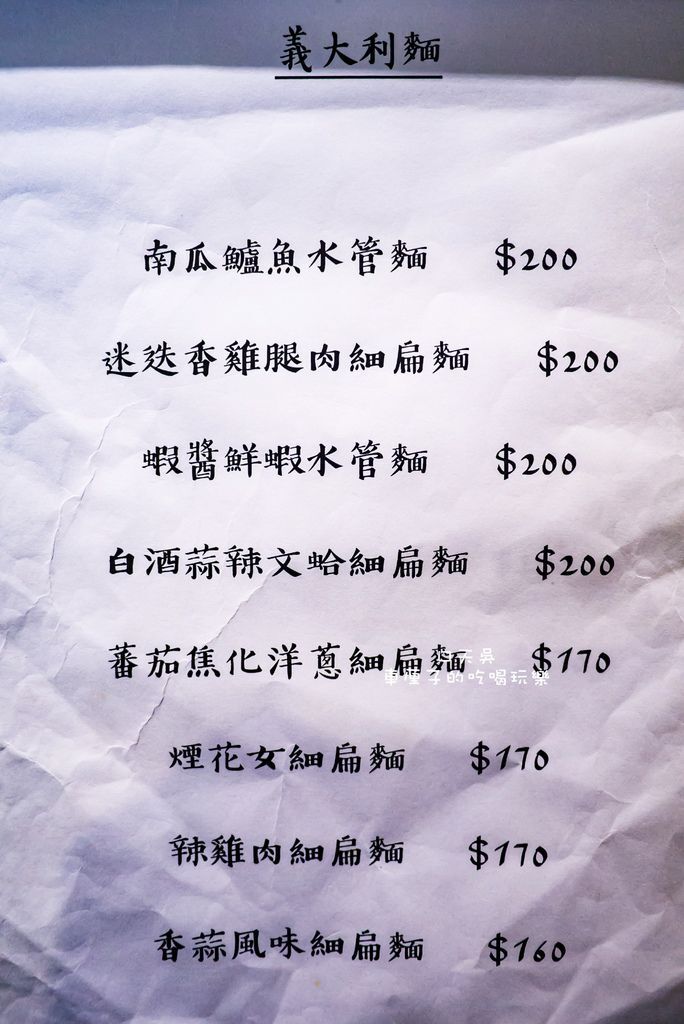 義大利麵
南瓜鱸魚水管麵 $200
迷迭香雞腿肉細扁麵 $200
蝦醬鮮蝦水管麵 $200
白酒蒜辣文蛤細扁麵 $200
蕃茄焦化洋蔥細扁麵 $170
的吃喝玩樂
煙花女細扁麵 $170
辣雞肉細扁麵 $170
香蒜風味細扁麵 $160